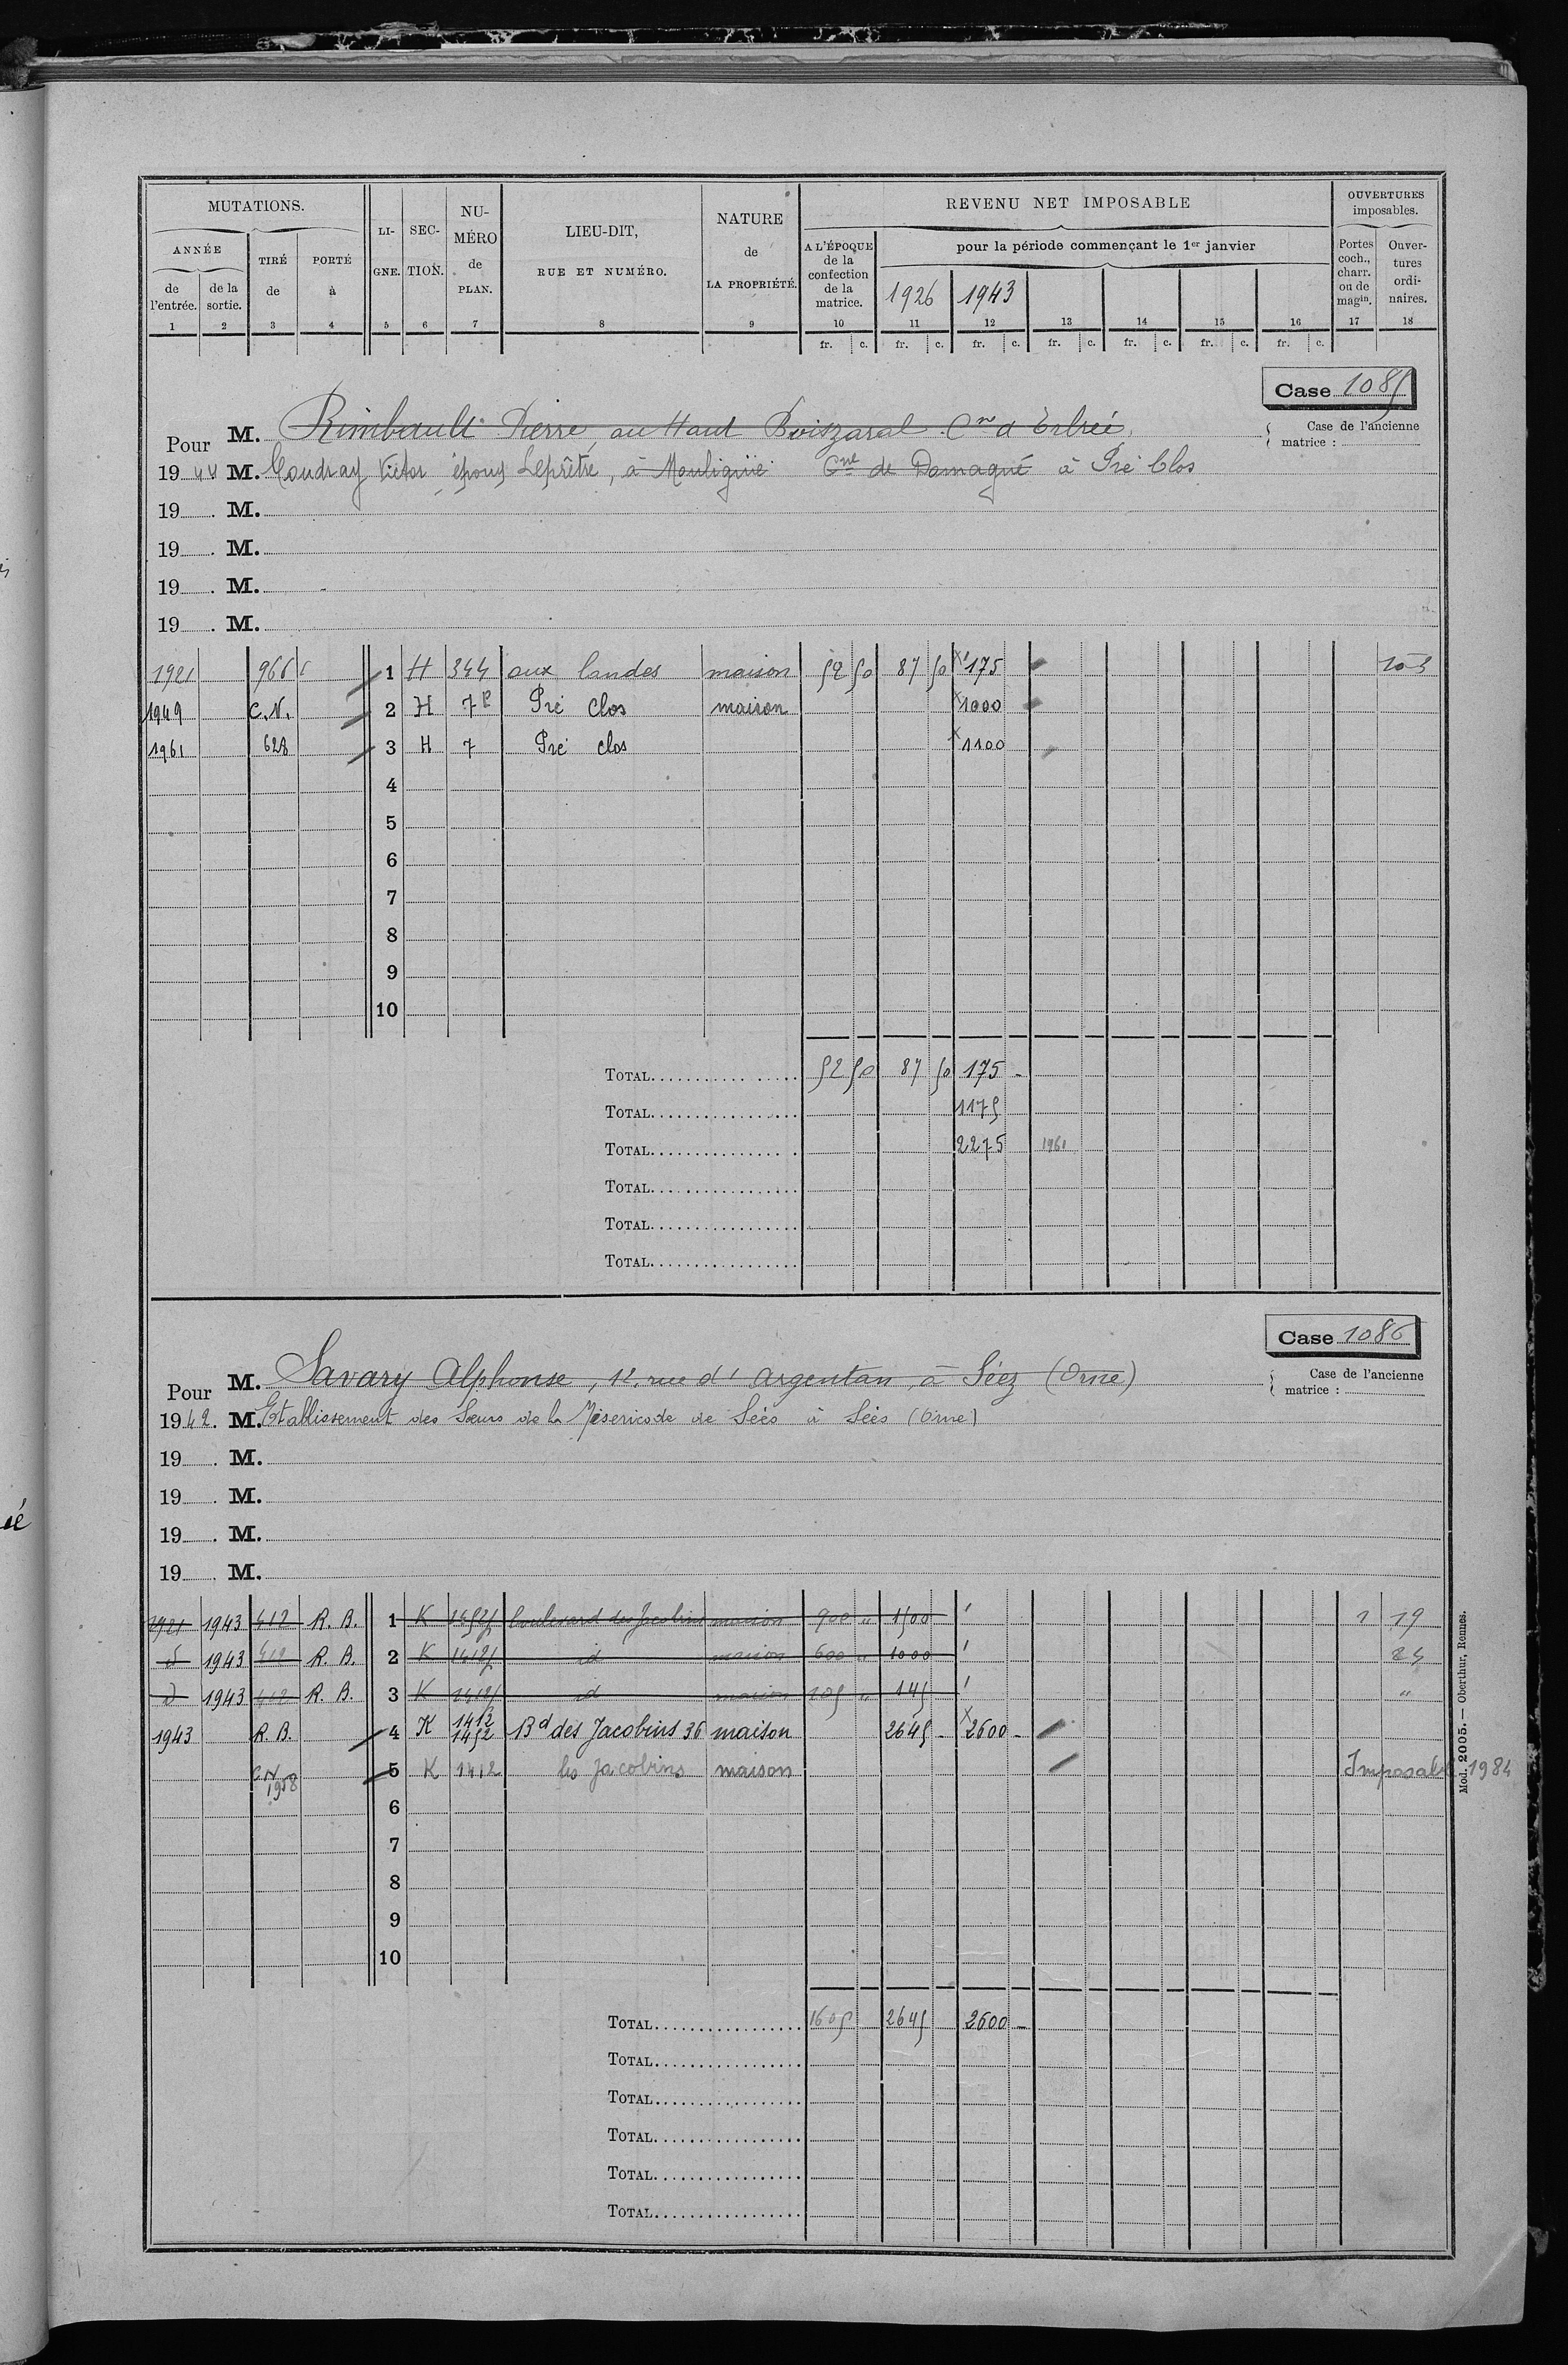 MUTATIONS. LI- SEC- NU- LIEU-DIT, NATURE REVENU NET IMPOSABLE OUVERTURES
ANNÉE TIRÉ PORTÉ GNE. TION. MÉRO RUE ET NUMÉRO. de A L'ÉPOQUE pour la période commençant le 1er janvier imposables.
de de la de à de LA PROPRIÉTÉ. de la Portes Ouver-
l'entrée. sortie. PLAN. confection coch., tures
de la charr. ordi-
matrice. 1926 1943 ou de naires.
magin.
1 2 3 4 5 6 7 8 9 10 11 12 13 14 15 16 17 18
fr. c. fr. c. fr. c. fr. c. fr. c. fr. c. fr. c.
Case 1085
Pour M. Rimbault Pierre, au Haut Cne d'Erbrée
Case de l'ancienne
matrice :
1944 M. Coudray Victor époux Leprêtre, à Cne de Domagné à Pré Clos
19 . M.
19 . M.
19 . M.
19 . M.
1921 966 1 H 344 aux landes maison 52 50 87 50 175
1949 C.N. 2 H 7P Pré Clos maison 1000
1961 628 3 H 7 Pré clos 1100
4
5
6
7
8
9
10
TOTAL 52 50 87 50 175 -
TOTAL 1175
TOTAL 2275 1961
TOTAL
TOTAL
TOTAL
Case 1086
Pour M. Savary Alphonse, 12, rue d'Argentan, à Séez (Orne)
Case de l'ancienne
matrice :
1942. M. Etablissement des Sœurs de la Miséricode de Sées à Sées (Orne)
19 . M.
19 . M.
19 . M.
19 . M.
1921 1943 412 R. B. 1 K boulevard des Jacobins maison 900 " 1500 1 19
d 1943 412 R. B. 2 K id maison 600 " 1000
d 1943 412 R. B. 3 K id maison 105 " 145 "
1943 R.B. 4 K 1412 1452 Bd des Jacobins 36 maison 2645 - 2600 -
CN 1958 5 K 1412 les Jacobins maison Imposable 1984
6
7
8
9
10
TOTAL 1605 2645 2600 -
TOTAL
TOTAL
TOTAL
TOTAL
TOTAL
Mod. 2005. — Oberthur, Rennes.